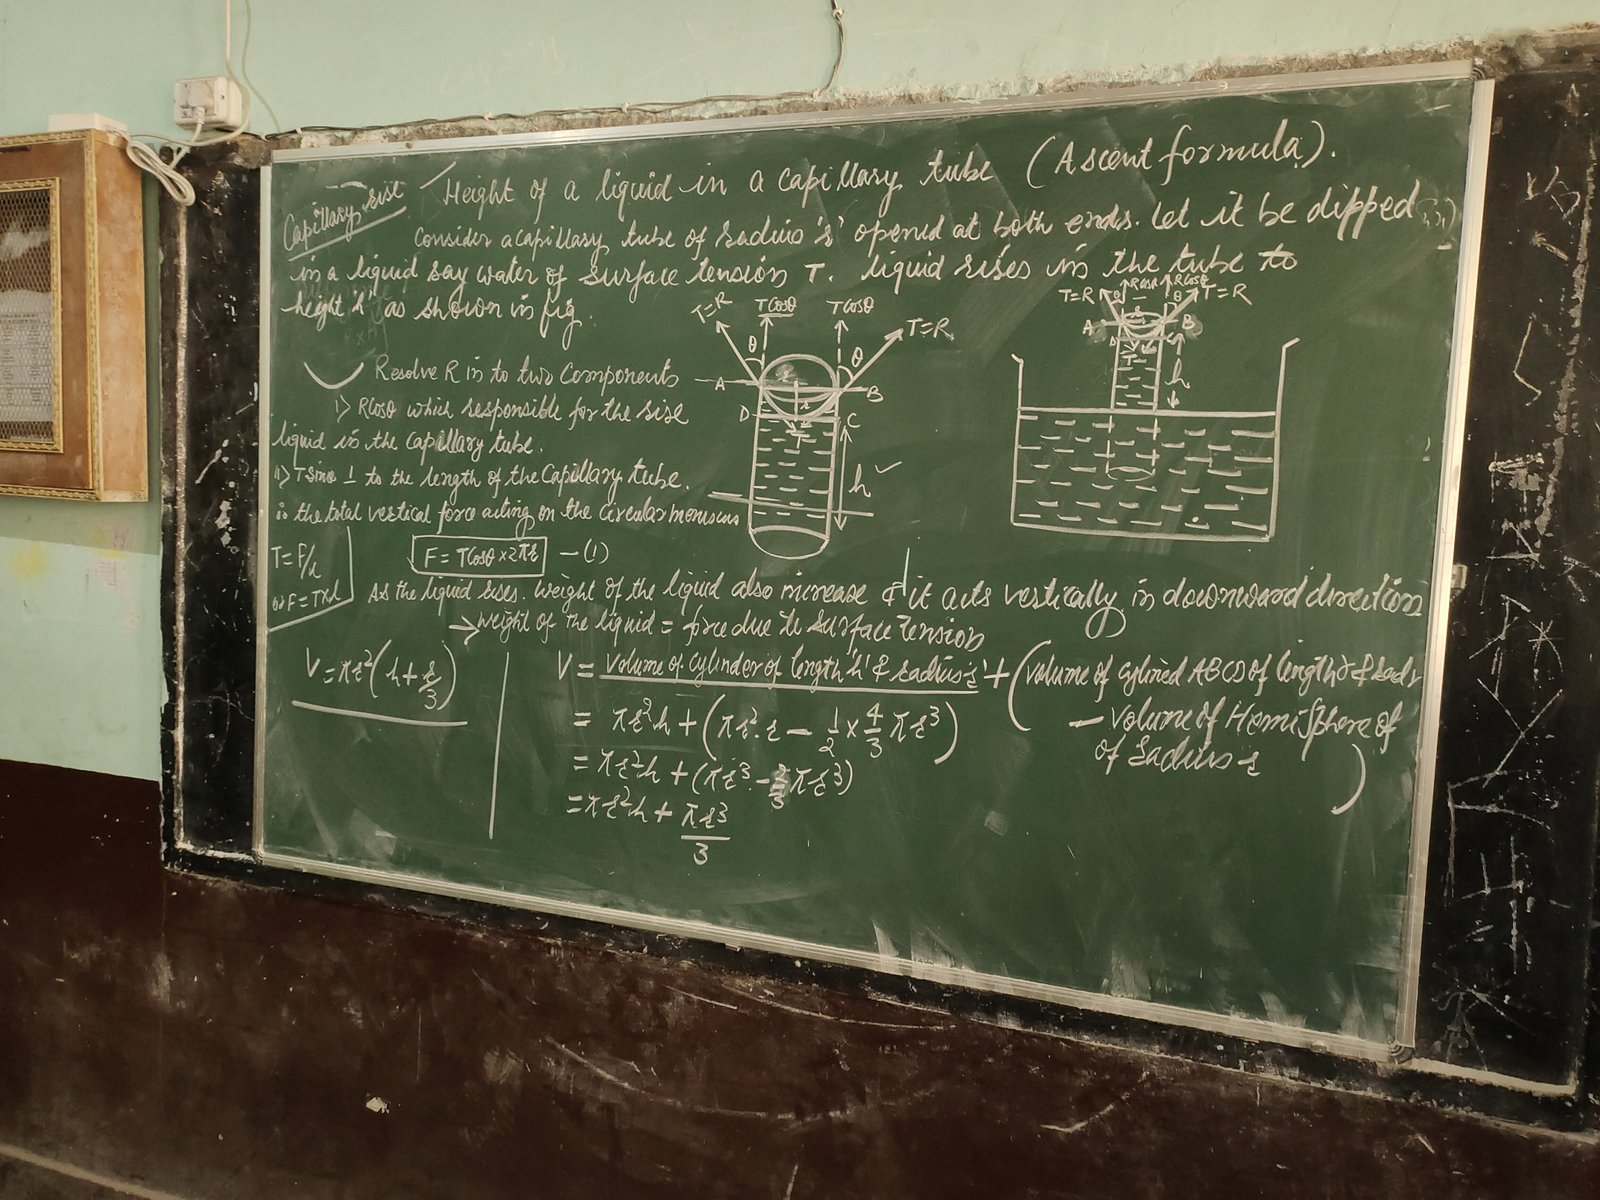 Capillary rise
Height of a liquid in a capillary tube (Ascent formula).
Consider a capillary tube of radius 'r' opened at both ends. Let it be dipped
in a liquid say water of surface tension T. liquid rises in the tube to
height 'h' as shown in fig.
T=R Tcosθ Tcosθ T=R
θ θ
A B
D C
r
h
T=R Rcosθ Rcosθ T=R
θ θ
A B
D C
h
Resolve R in to two Components
i> Rcosθ which responsible for the rise
liquid in the capillary tube.
ii> Tsinθ ⊥ to the length of the Capillary tube.
∴ the total vertical force acting on the circular meniscus
T = F/l
or F = T×l
F = Tcosθ × 2πr — (1)
As the liquid rises. weight of the liquid also increase & it acts vertically in downward direction
→ weight of the liquid = force due to surface tension
V = πr²(h + r/3)
V = Volume of cylinder of length 'h' & radius 'r' + (volume of cylined ABCD of length r & radi
– Volume of Hemisphere of
of radius r)
= πr²h + (πr².r – 1/2 × 4/3 πr³)
= πr²h + (πr³ – 2/3 πr³)
= πr²h + πr³/3